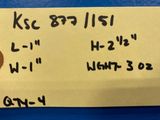 KSC 877/1151
L-1" H-2½"
W-1" WGHT-3 OZ
QTY-4